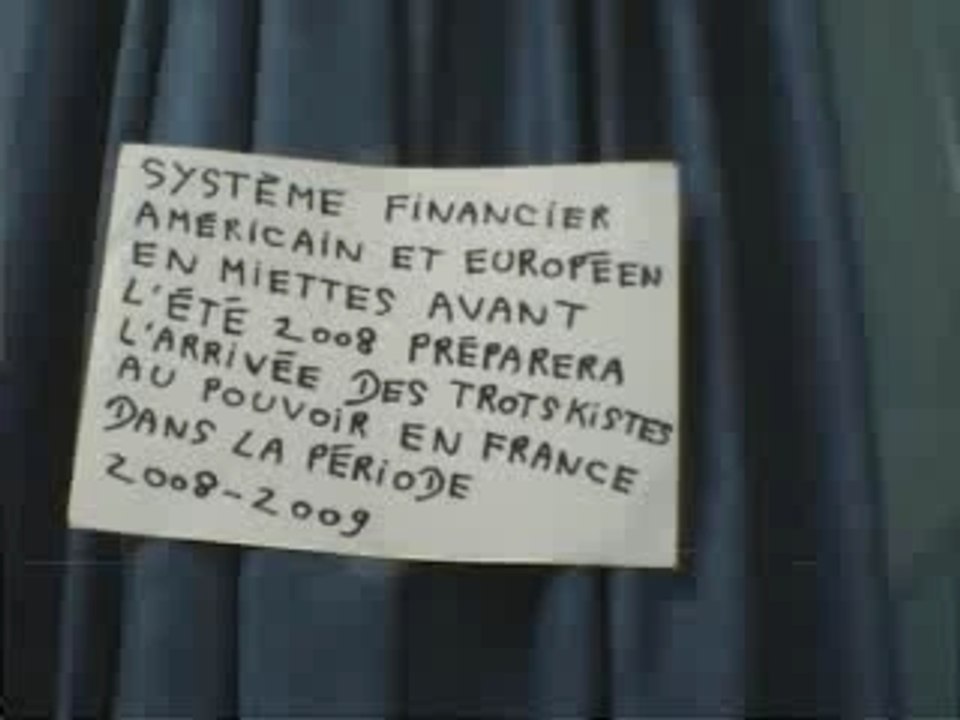 SYSTÈME FINANCIER
AMÉRICAIN ET EUROPÉEN
EN MIETTES AVANT
L'ÉTÉ 2008 PRÉPARERA
L'ARRIVÉE DES TROTSKISTES
AU POUVOIR EN FRANCE
DANS LA PÉRIODE
2008-2009